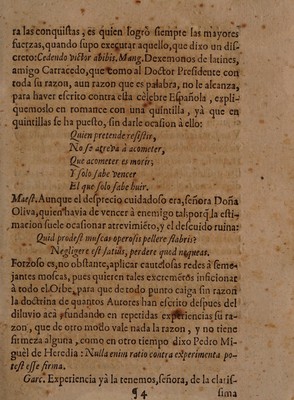 ra las conquistas, es quien logrò siempre las mayores
fuerzas, quando supo executar aquello, que dixo un dis-
creto: Cedendo victor abibis. Mang. Dexemonos de latines,
amigo Carracedo, que como al Doctor Presidente con
toda su razon, aun razon que es palabra, no le alcanza,
para haver escrito contra ella celebre Española, expli-
quemoslo en romance con una quintilla, yà que en
quintillas se ha puesto, sin darle ocasion à ello:
Quien pretende resistir,
No se atreva à acometer,
Que acometer es morir;
Y solo sabe vencer
El que solo sabe huir.
Maest. Aunque el desprecio cuidadoso era, señora Doña
Oliva, quien havia de vencer à enemigo tal, porq̃ la esti-
macion suele ocasionar atrevimiẽto, y el descuido ruina:
Quid prodest muscas operosis pellere flabris?
Negligere est satius, perdere quod nequeas.
Forzoso es, no obstante, aplicar cautelosas redes à seme-
jantes moscas, pues quieren tales excremẽtos inficionar
à todo el Orbe, para que de todo punto caiga sin razon
la doctrina de quantos Autores han escrito despues del
diluvio acà, fundando en repetidas experiencias su ra-
zon, que de otro modo vale nada la razon, y no tiene
firmeza alguna, como en otro tiempo dixo Pedro Mi-
guèl de Heredia: Nulla enim ratio contra experimenta po-
test esse firma.
Garc. Experiencia yà la tenemos, señora, de la claris-
¶4 sima